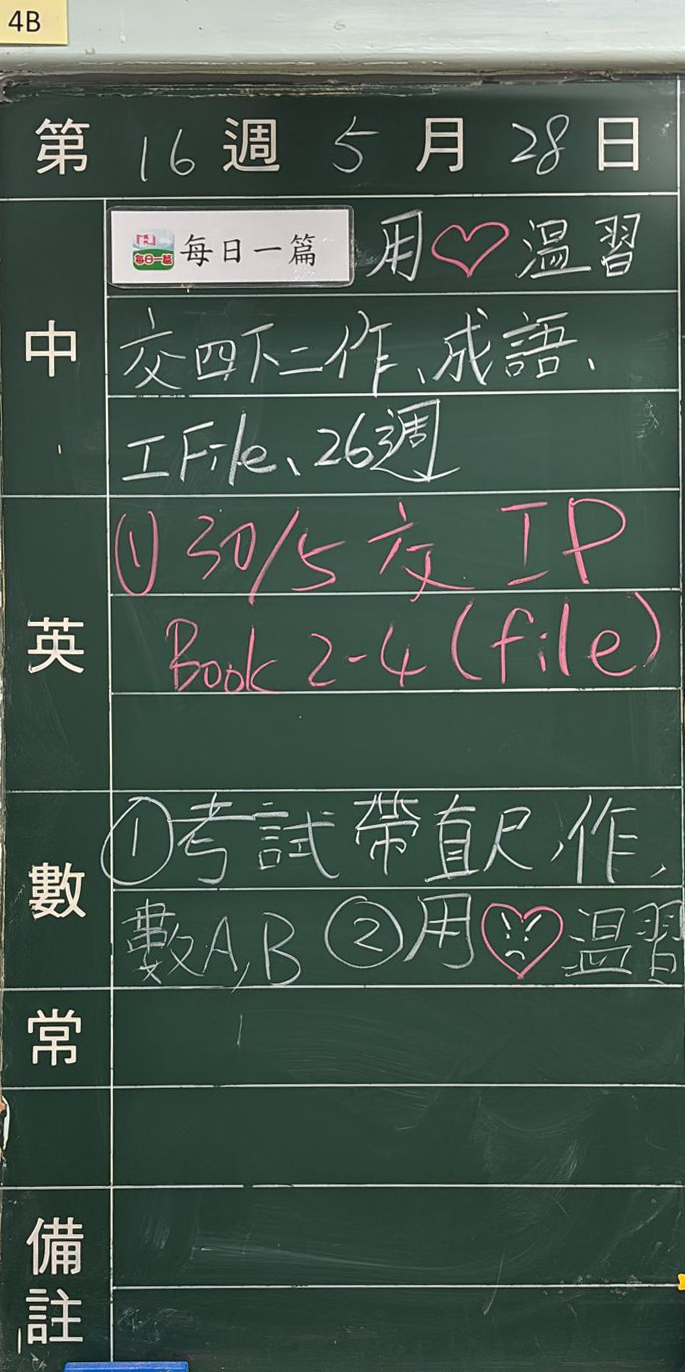 4B
第 16 週 5 月 28 日
每日一篇 每日一篇 用♡溫習
中
交四下二作、成語、
工File、26週
英
① 30/5 交 IP
Book 2-4 (file)
數
①考試帶直尺,作,
數A,B ②用♡溫習
常
備註